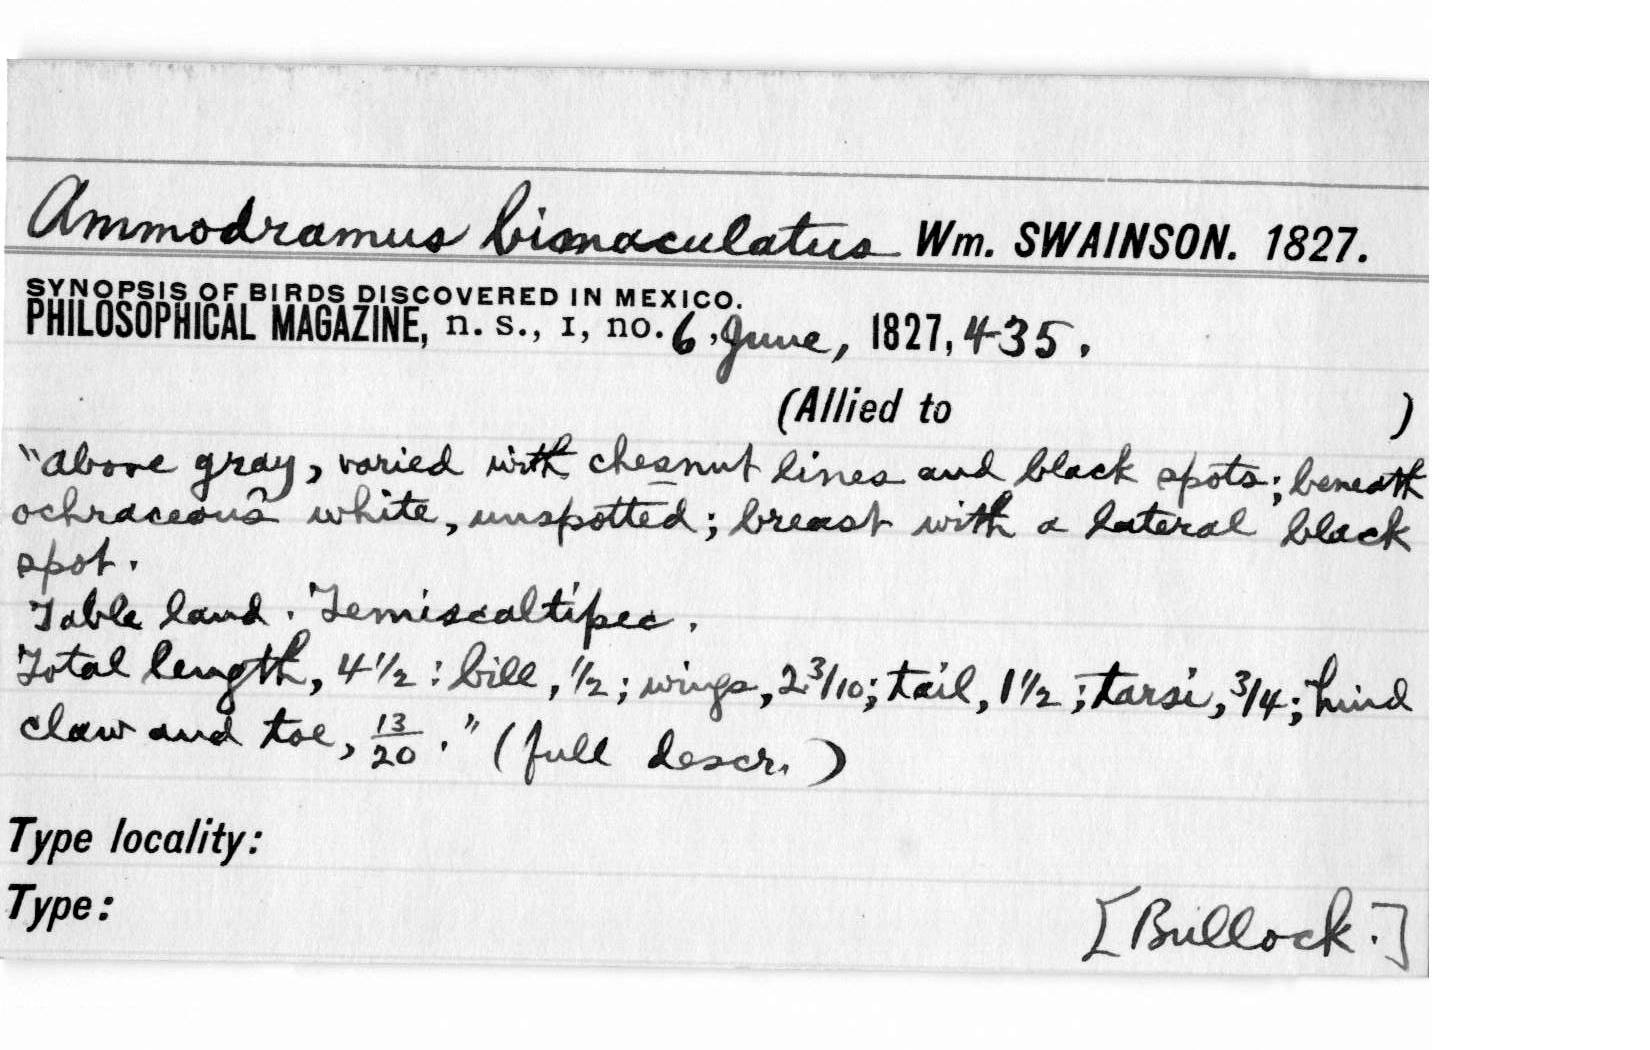 Ammodramus bimaculatus Wm. SWAINSON. 1827.
SYNOPSIS OF BIRDS DISCOVERED IN MEXICO.
PHILOSOPHICAL MAGAZINE, n. s., I, no. 6, June, 1827, 435.
(Allied to )
"above gray, varied with chesnut lines and black spots; beneath
ochraceous white, unspotted; breast with a lateral black
spot.
Table land. Temiscaltipec.
Total length, 4 1/2 : bill, 1/2; wings, 2 3/10; tail, 1 1/2; tarsi, 3/4; hind
claw and toe, 13/20." (full descr.)
Type locality:
Type:
[Bullock.]